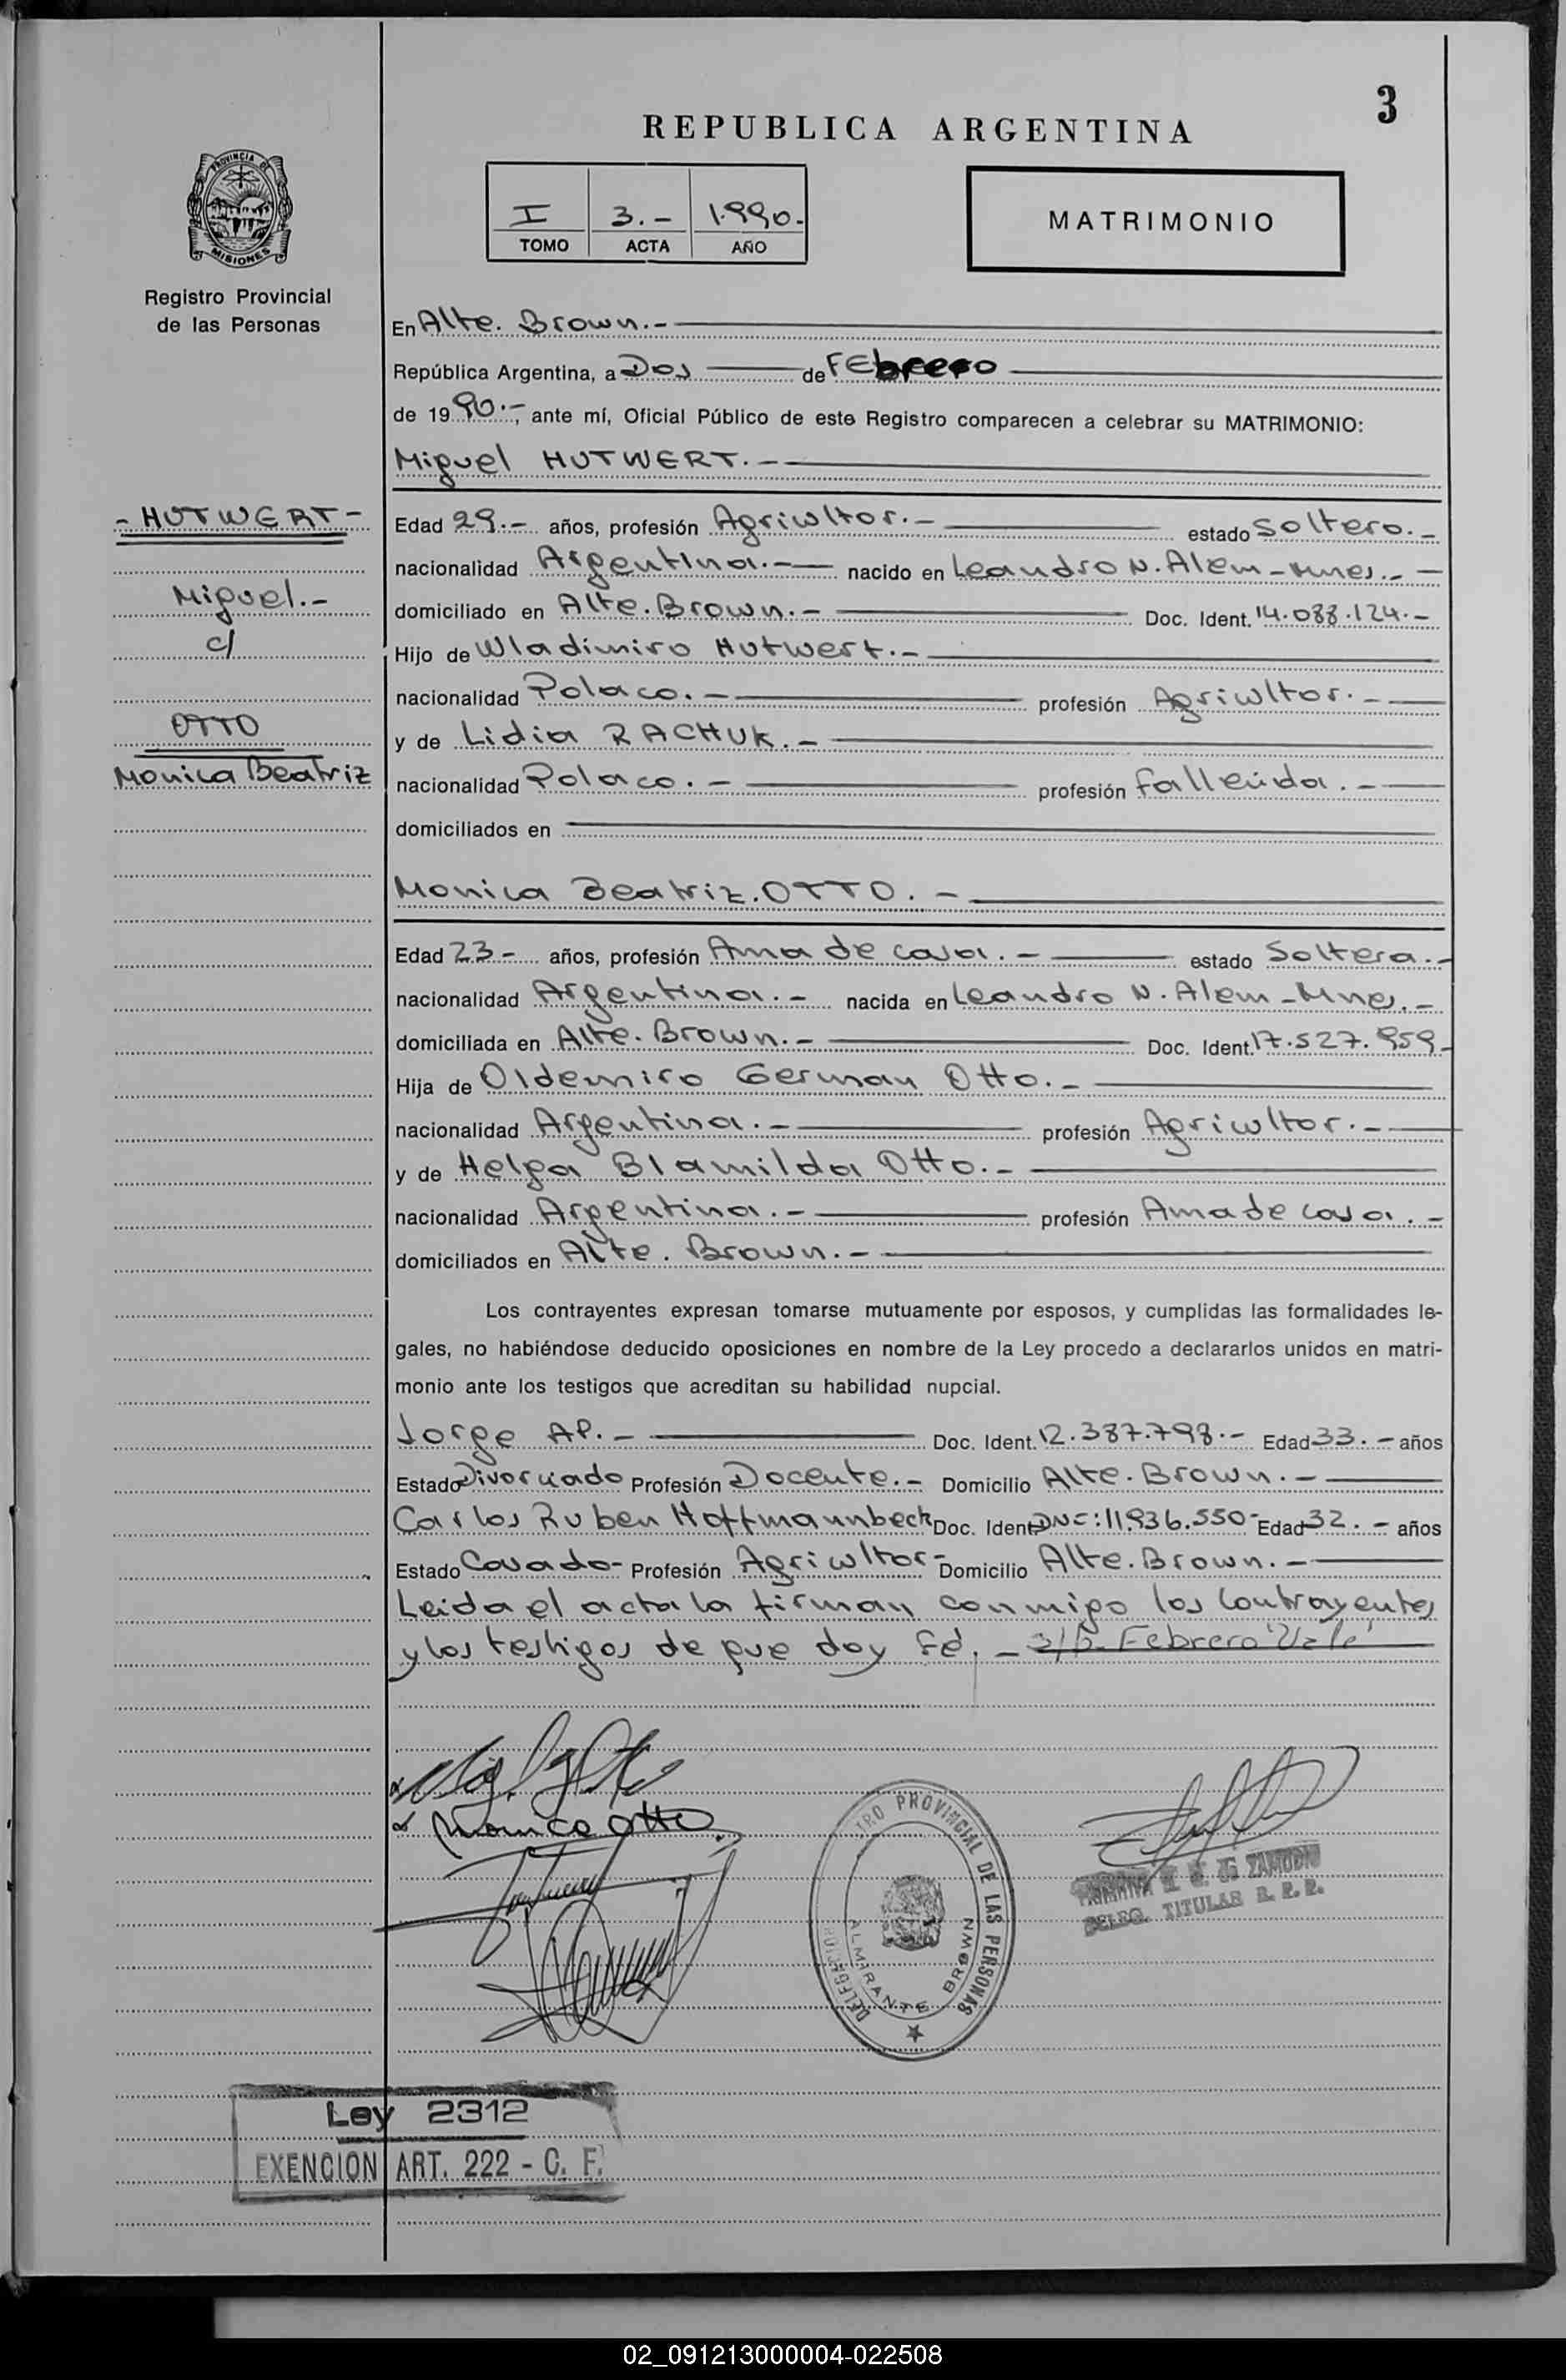 3
REPUBLICA ARGENTINA
PROVINCIA DE
MISIONES
I 3.- 1.990.-
TOMO ACTA AÑO
MATRIMONIO
Registro Provincial
de las Personas
En Alte. Brown.-
República Argentina, a Dos de FEbrero
de 19 90.-, ante mí, Oficial Público de este Registro comparecen a celebrar su MATRIMONIO:
Miguel HUTWERT.-
- HUTWERT -
Miguel.-
c/
OTTO
Monica Beatriz
Edad 29.- años, profesión Agricultor.- estado Soltero.-
nacionalidad Argentina.- nacido en Leandro N. Alem - Mnes.-
domiciliado en Alte. Brown.- Doc. Ident. 14.088.124.-
Hijo de Wladimiro Hutwert.-
nacionalidad Polaco.- profesión Agricultor.-
y de Lidia RACHUK.-
nacionalidad Polaco.- profesión fallecida.-
domiciliados en
Monica Beatriz. OTTO.-
Edad 23- años, profesión Ama de casa.- estado Soltera.-
nacionalidad Argentina.- nacida en Leandro N. Alem - Mnes.-
domiciliada en Alte. Brown.- Doc. Ident. 17.527.959-
Hija de Oldemiro German Otto.-
nacionalidad Argentina.- profesión Agricultor.-
y de Helga Blamilda Otto.-
nacionalidad Argentina.- profesión Ama de casa.-
domiciliados en Alte. Brown.-
Los contrayentes expresan tomarse mutuamente por esposos, y cumplidas las formalidades le-
gales, no habiéndose deducido oposiciones en nombre de la Ley procedo a declararlos unidos en matri-
monio ante los testigos que acreditan su habilidad nupcial.
Jorge AP.- Doc. Ident. 12.387.798.- Edad 33.- años
Estado Divorciado Profesión Docente.- Domicilio Alte. Brown.-
Carlos Ruben Hoffmannbeck Doc. Ident. DNI: 11.936.550- Edad 32.- años
Estado Casado- Profesión Agricultor- Domicilio Alte. Brown.-
Leida el acta la firman conmigo los Contrayentes
y los testigos de que doy Fé.- s/b. Febrero "Vale"
Monica Otto
TRO PROVINCIAL DE LAS PERSONAS
ALMIRANTE BROWN
DELEG. TITULAR R. P. P.
Ley 2312
EXENCION ART. 222 - C. F.
02_091213000004-022508